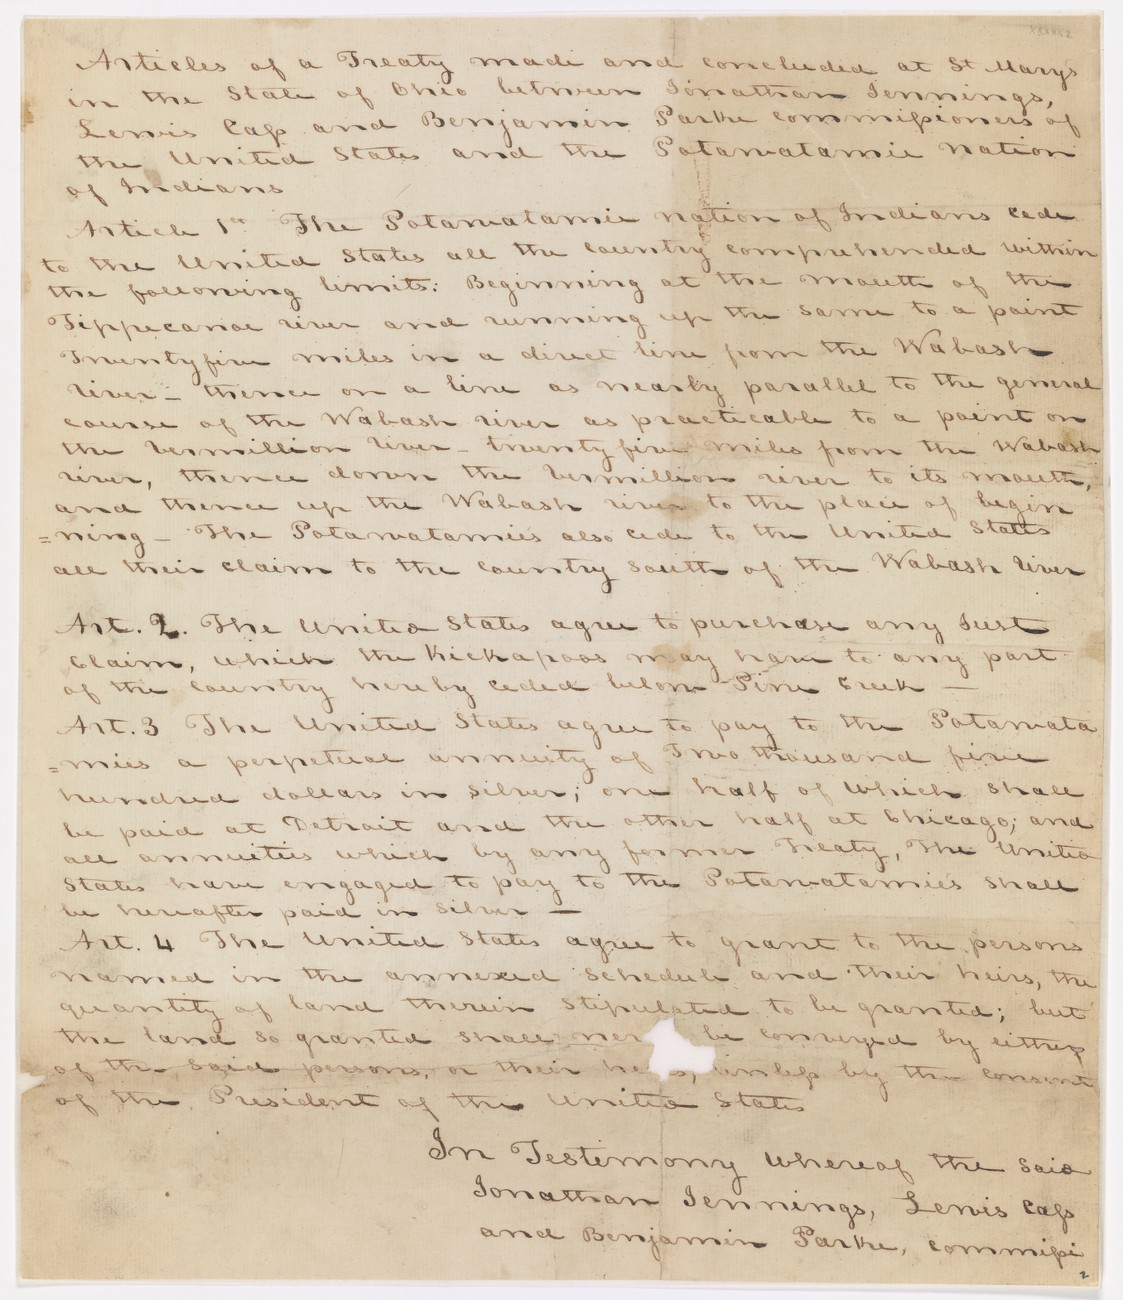 Articles of a Treaty made and concluded at St Mary's
in the State of Ohio between Jonathan Jennings,
Lewis Cass and Benjamin Parke commissioners of
the United States and the Potawatamie nation
of Indians
Article 1st The Potawatamie nation of Indians cede
to the United States all the country comprehended within
the following limits: Beginning at the mouth of the
Tippecanoe river and running up the same to a point
Twenty five miles in a direct line from the Wabash
river – thence on a line as nearly parallel to the general
course of the Wabash river as practicable to a point on
the Vermillion river – twenty five miles from the Wabash
river, thence down the Vermillion river to its mouth,
and thence up the Wabash river to the place of begin
=ning – The Potawatamies also cede to the United States
all their claim to the country south of the Wabash river
Art. 2. The United States agree to purchase any Just
Claim, which the Kickapoos may have to any part
of the country hereby ceded below Pine Creek —
Art. 3 The United States agree to pay to the Potawata
=mies a perpetual annuity of Two thousand five
hundred dollars in silver; one half of which shall
be paid at Detroit and the other half at Chicago; and
all annuities which by any former Treaty, The United
States have engaged to pay to the Potawatamies shall
be hereafter paid in silver —
Art. 4 The United States agree to grant to the persons
named in the annexed schedule and their heirs, the
quantity of land therein stipulated to be granted; but
the land so granted shall nev be conveyed by either
of the said persons, or their he s, unless by the consent
of the President of the United States
In Testimony whereof the said
Jonathan Jennings, Lewis Cass
and Benjamin Parke, commissi
2